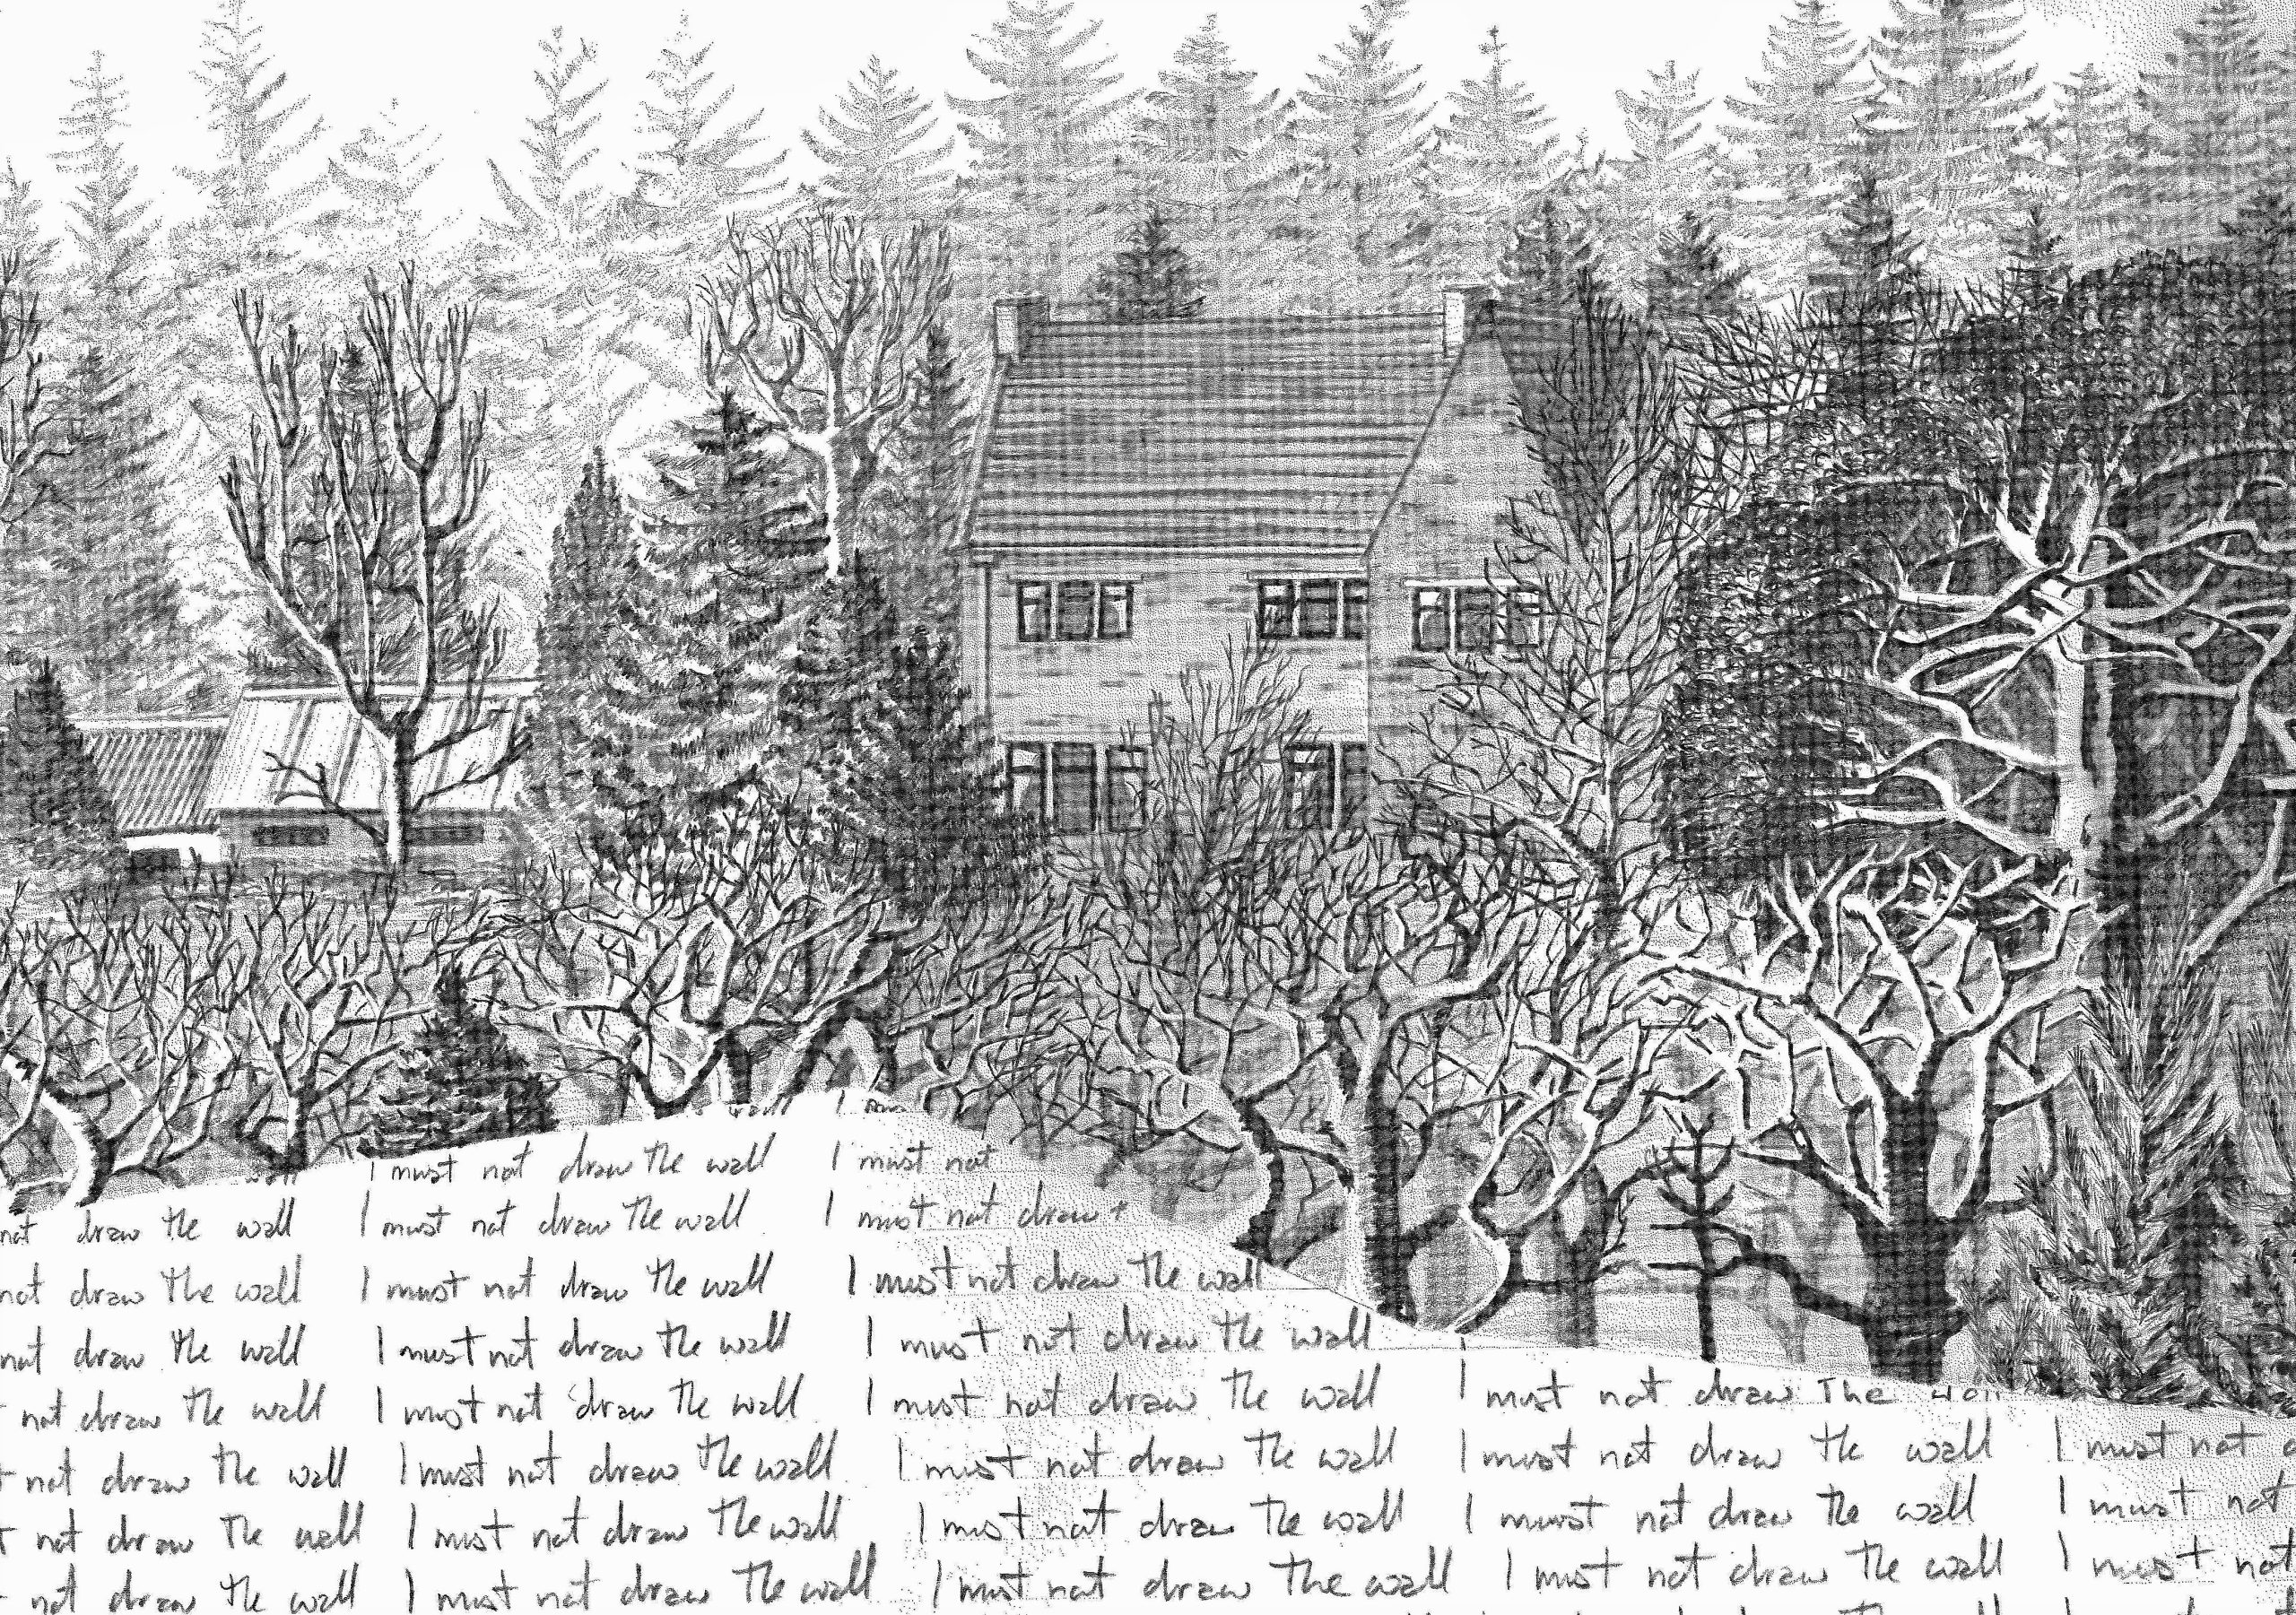 wall I
I must not draw the wall I must not
not draw the wall I must not draw the wall I must not draw t
not draw the wall I must not draw the wall I must not draw the wall
not draw the wall I must not draw the wall I must not draw the wall
not draw the wall I must not draw the wall I must not draw the wall I must not draw the wall
t not draw the wall I must not draw the wall I must not draw the wall I must not draw the wall I must not d
t not draw the wall I must not draw the wall I must not draw the wall I must not draw the wall I must not
not draw the wall I must not draw the wall I must not draw the wall I must not draw the wall I must not